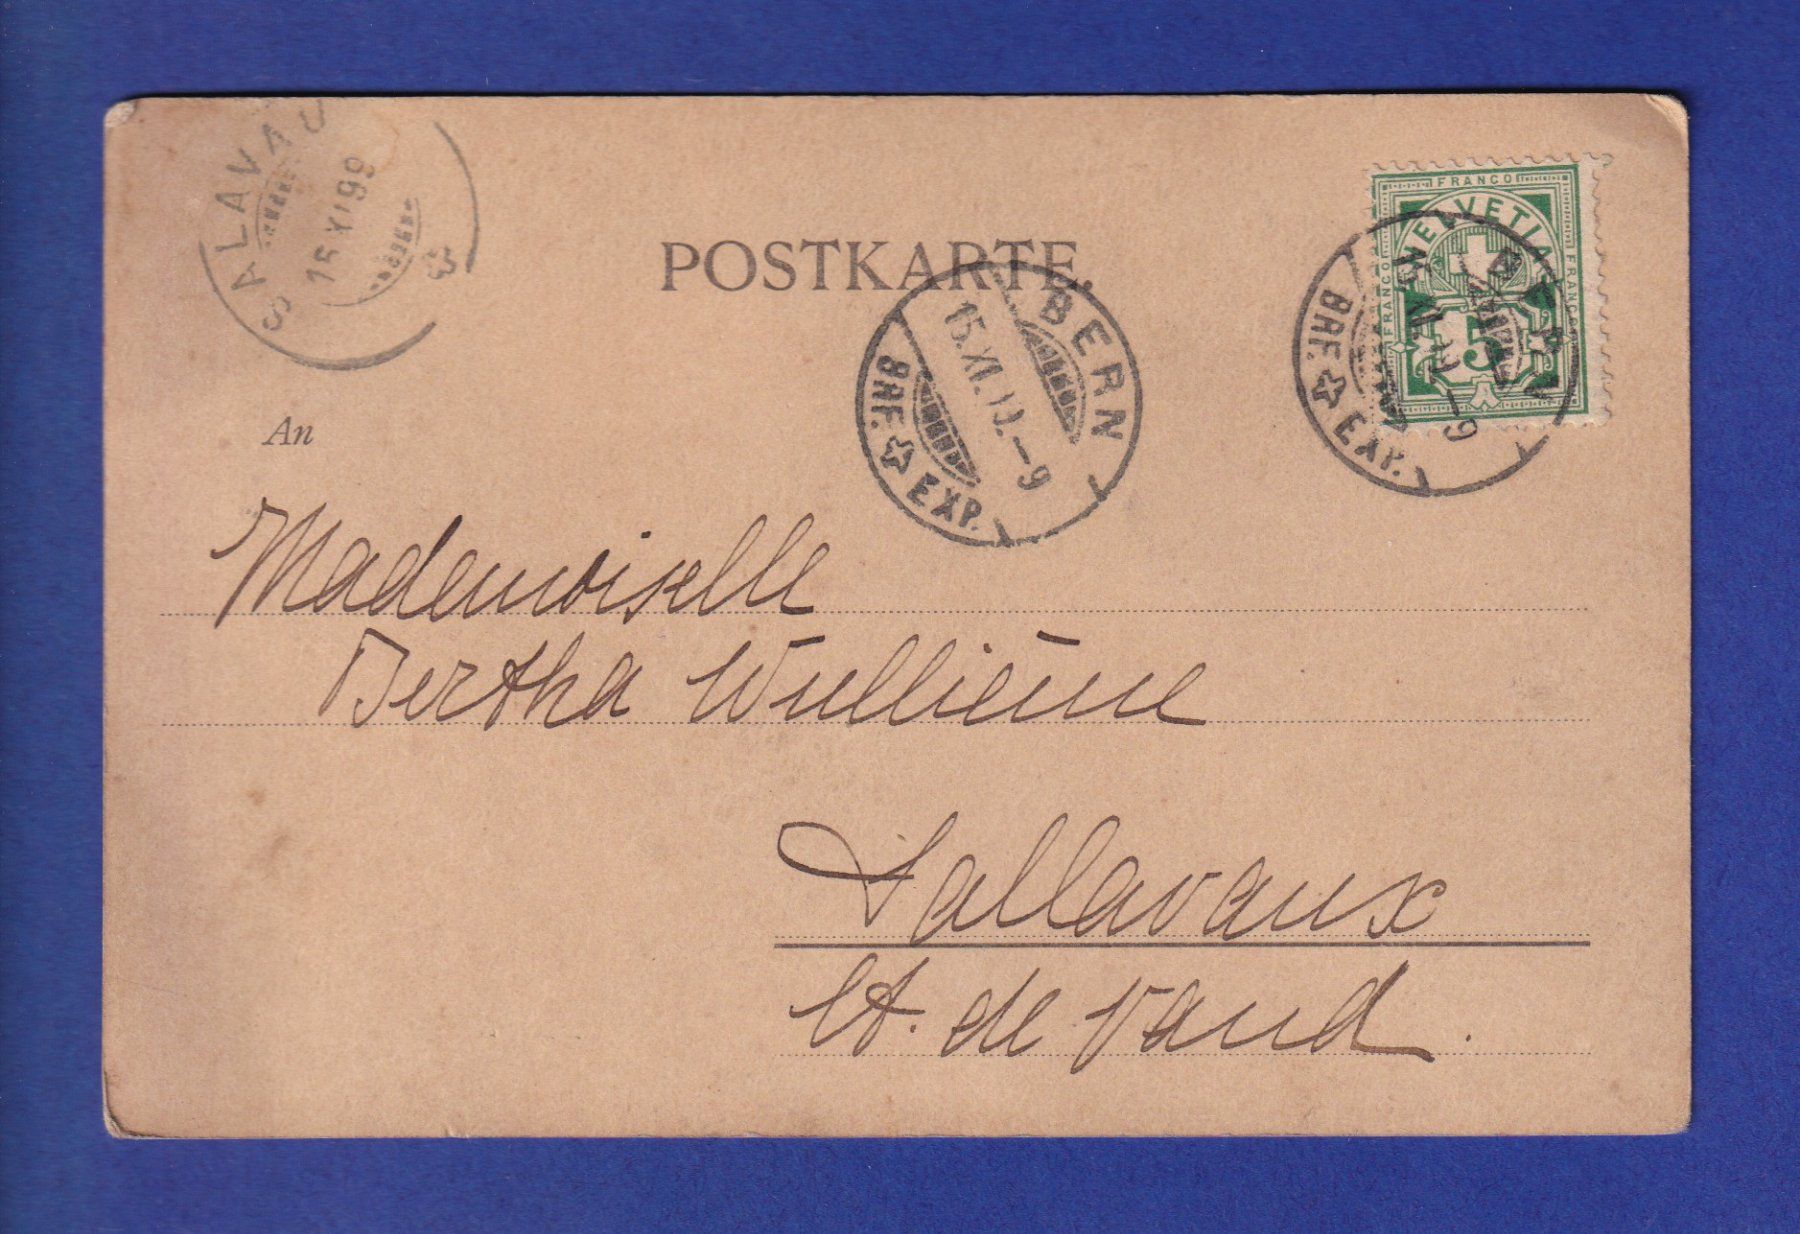 SALAVAU
16 XI 99
POSTKARTE.
FRANCO
HELVETIA
FRANCO
FRANCO
5
BERN
15. XI. –9
BRF. EXP.
BRF. EXP.
–9
An
Mademoiselle
Bertha Wullième
Sallavaux
Ct. de Vaud.